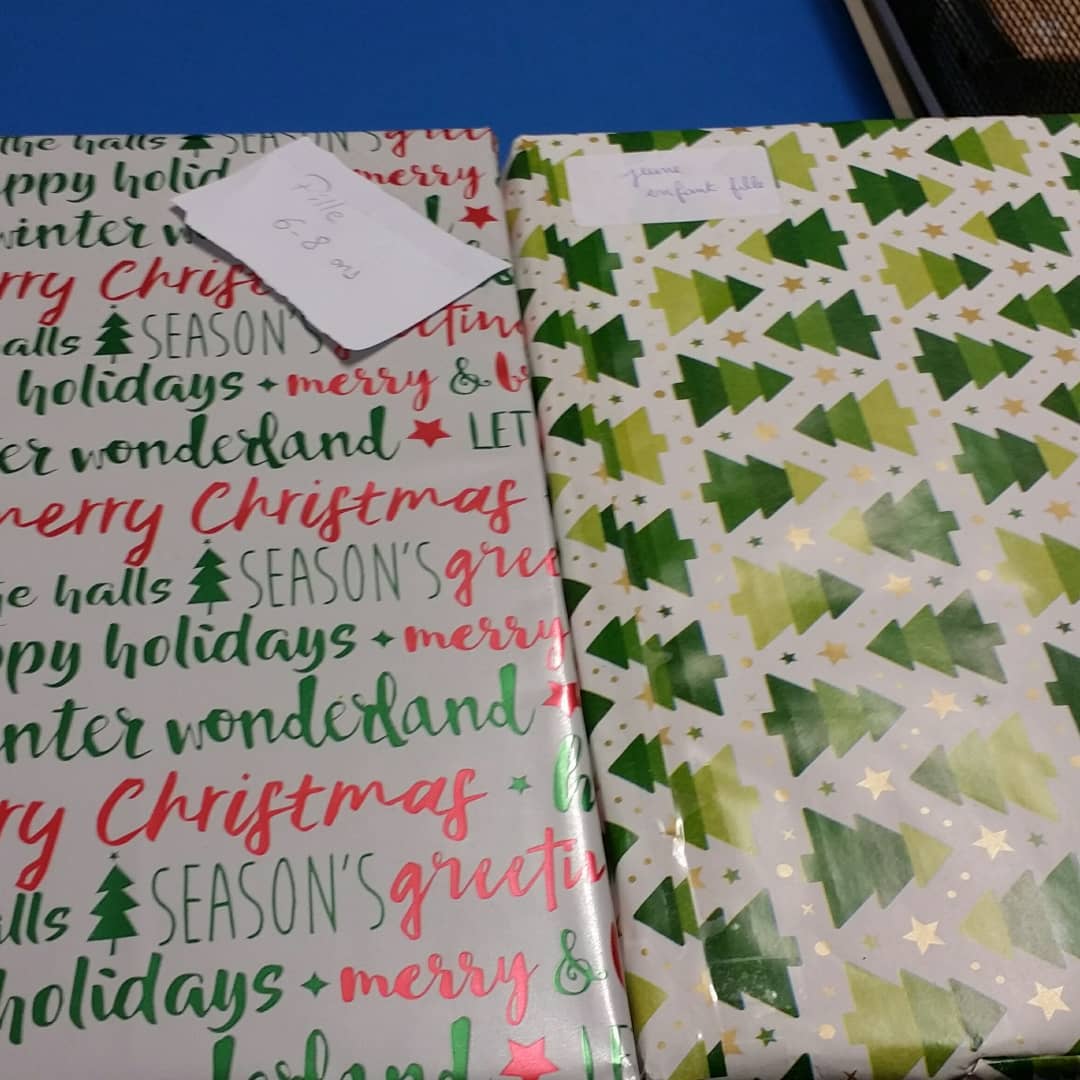 the halls SEASON'S
ppy holid merry
winter w
rry Christ
alls SEASON'S eeting
holidays merry & b
er wonderland LET
merry Christmas
he halls SEASON'S gree
ppy holidays merry
nter wonderland
ry Christmas h
alls SEASON'S greetin
holidays merry &
derland LE
Fille
6-8 ans
jeune
enfant fille